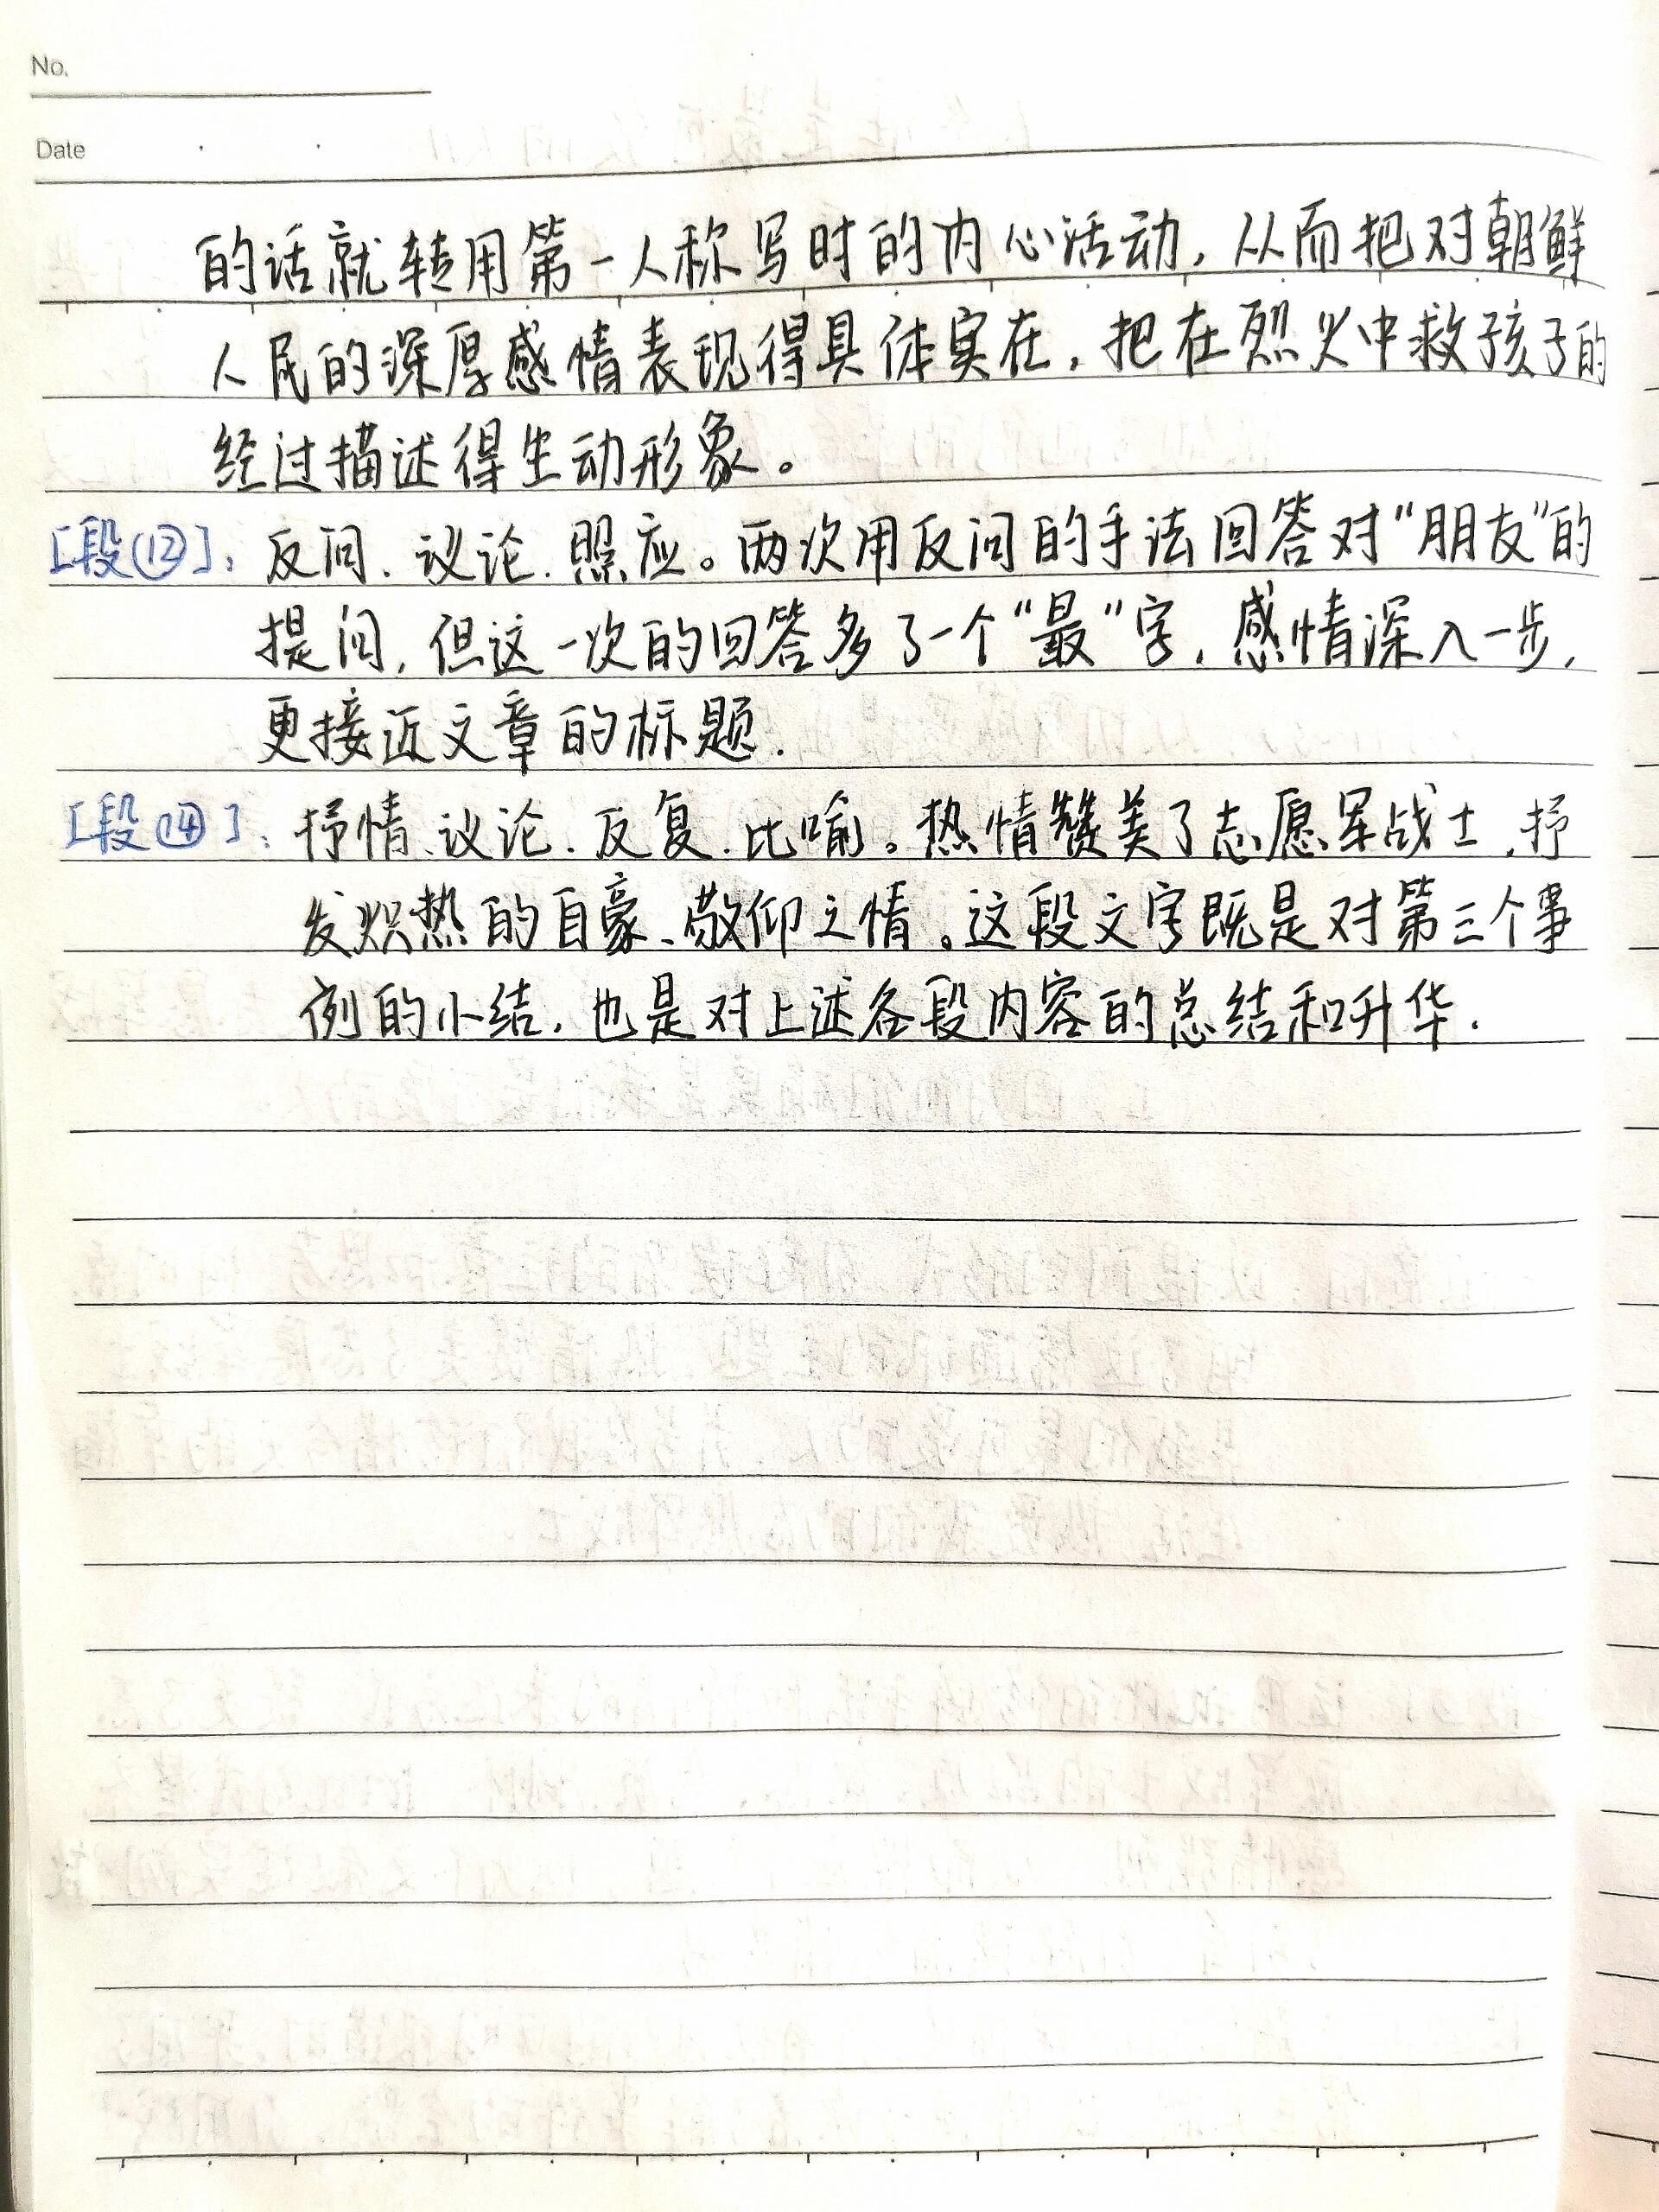 No.
Date
的话就转用第一人称写时的内心活动,从而把对朝鲜
人民的深厚感情表现得具体实在,把在烈火中救孩子的
经过描述得生动形象。
[段⑫]:反问、议论、照应。两次用反问的手法回答对“朋友”的
提问,但这一次的回答多了一个“最”字,感情深入一步,
更接近文章的标题.
[段⑭]:抒情、议论、反复、比喻。热情赞美了志愿军战士,抒
发炽热的自豪、敬仰之情。这段文字既是对第三个事
例的小结,也是对上述各段内容的总结和升华.